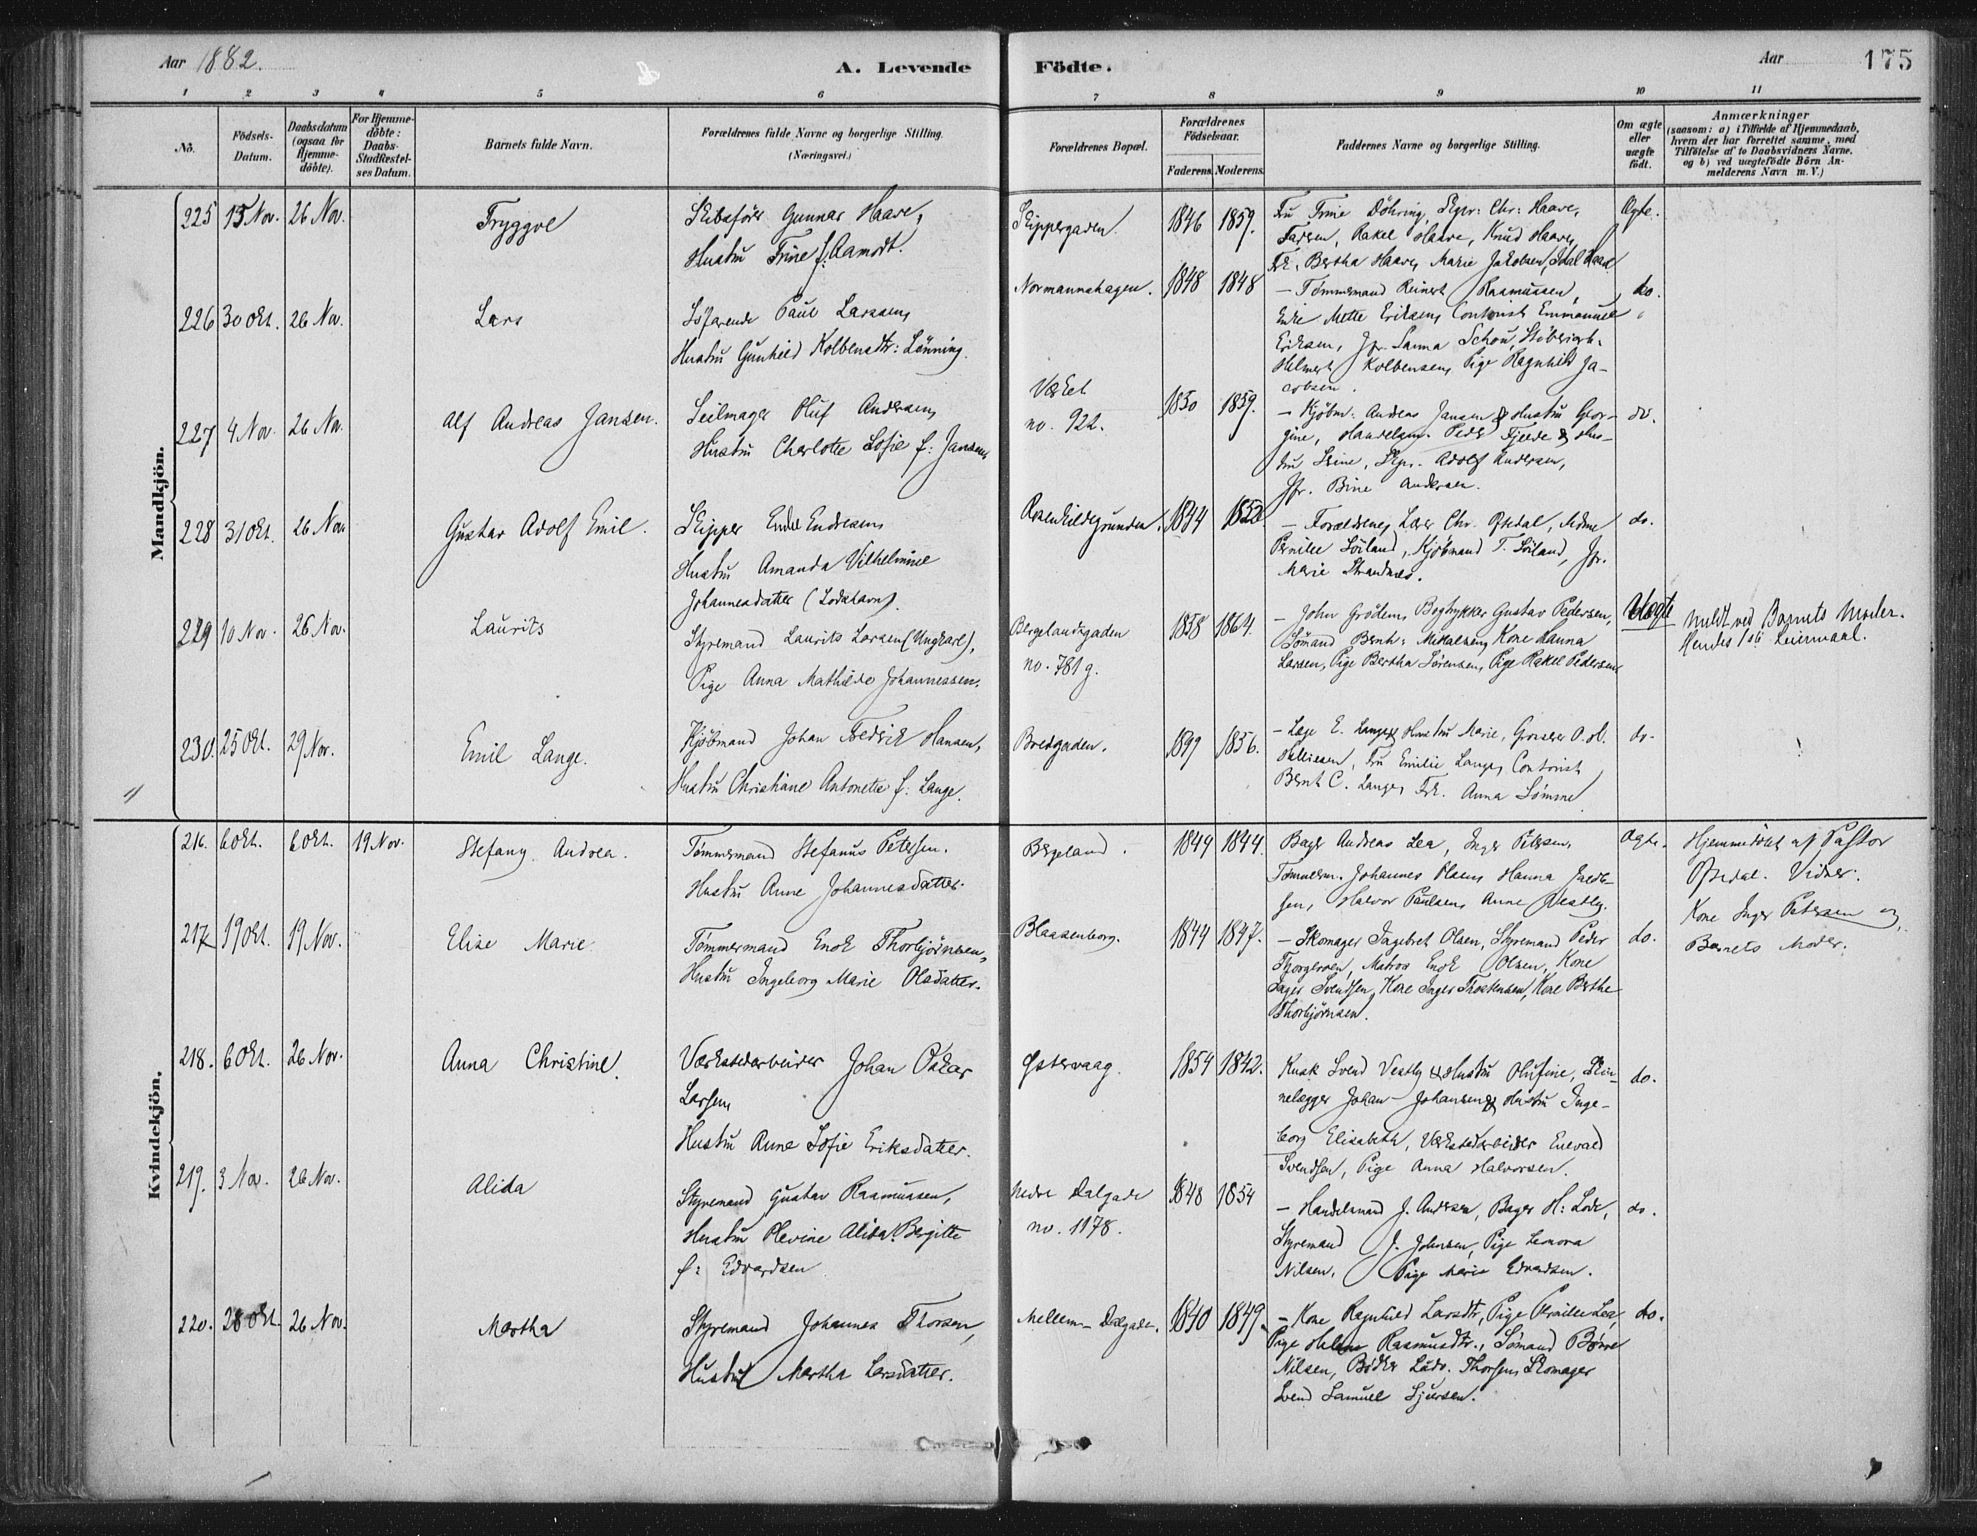 Aar 1882.
A. Levende
Födte.
Aar
175
1 2 3 4 5 6 7 8 9 10 11
No.
Födsels-
Datum.
Daabsdatum
(ogsaa for
Hjemme-
döbte).
For Hjemme-
döbte:
Daabs-
Stadfæstel-
ses Datum.
Barnets fulde Navn.
Forældrenes fulde Navne og borgerlige Stilling.
(Næringsvei.)
Forældrenes Bopæl.
Forældrenes
Födselsaar.
Faderens. Moderens.
Faddernes Navne og borgerlige Stilling.
Om ægte
eller
uægte
födt.
Anmærkninger
(saasom: a) i Tilfælde af Hjemmedaab,
hvem der har forrettet samme, med
Tilföielse af to Daabsvidners Navne,
og b) ved uægtefödte Börn An-
melderens Navn m. V.)
Mandkjön.
225 15 Nov. 26 Nov. Tryggve
Skibsfører Gunnar Haave,
Hustru Trine f. Aamodt.
Skippergaden. 1846 1859.
Fru Trine Döhring, Skpr. Chr: Haave,
Rakel Haave, Knud Haave,
Frk. Bertha Haave, Marie Jakobsen,
Ægte.
226 30 Okt. 26 Nov. Lars
Søfarende Paul Larssen,
Hustru Gunhild Kolbensdtr: Lønning.
Normannshagen. 1848 1848
– Tømmermand Reinert Rasmussen,
Enke Mette Eriksen, Contorist Emmanuel
Eriksen, Jfr. Sanna Schou,
Helmert Kolbensen, Pige Ragnhild Ja-
cobsen.
do.
227 4 Nov. 26 Nov. Alf Andreas Jansen.
Seilmager Oluf Andersen,
Hustru Charlotte Sofie f: Jansen,
Verket
no. 922.
1850 1859.
– Kjøbm. Andreas Jansen & Hustru Geor-
gine, Handelsm. Peder Fjelde & Hus-
tru Sine, Skpr. Adolf Andersen,
Jfr. Bine Andersen.
do.
228 31 Okt. 26 Nov Gustav Adolf Emil.
Skipper Endre Endresen,
Hustru Amanda Vilhelmine
Johannesdatter (Lodshavn).
Rosenkildegrunden. 1844 1853
– Forældrene, Lærer Chr. Oftedal, Madme
Pernille Søiland, Kjøbmand T. Søiland, Jfr.
Marie Strandnæs.
do.
229 10 Nov. 26 Nov. Laurits
Styremand Laurits Larsen (Ungkarl),
Pige Anna Mathilde Johannessen.
Bergelandsgaden
no. 781 g.
1858 1864.
– John Grøden, Bogtrykker Gustav Pedersen,
Sømand Bernh: Mikalsen, Kone Hanna
Larsen, Pige Bertha Sørensen, Pige Rakel Pedersen
Uægte
Meldt ved Barnets Moder.
Hendes 1ste Leiermaal.
230. 25 Okt. 29 Nov. Emil Lange.
Kjøbmand Johan Fredrik Hansen,
Hustru Christiane Antonette f: Lange.
Bredgaden. 1856.
– Læge E. Lange & Hustru Marie, Grosserer O. H.
Fru Emilie Lange, Contorist
Bernt C. Lange, Frk. Anna Sømme
do.
Kvindekjön.
216. 6 Okt. 6 Okt. 19 Nov. Stefany Andrea.
Tømmermand Stefanus Petersen.
Hustru Anne Johannesdatter.
Bergeland. 1849 1844.
Bager Andreas Lea, Inger Petersen,
Tømmerm. Johannes Olsen, Hanna Jacob-
sen, Halvor Paulsen, Anne Vestly.
Ægte.
Hjemmedöbt af Pastor
Oftedal. Vidner:
Kone Inger Petersen og
Barnets Moder.
217 19 Okt. 19 Nov. Elise Marie
Tømmermand Enok Thorbjørnsen,
Hustru Ingeborg Marie Olsdatter.
Blaasenborg. 1844 1847.
– Skomager Ingebret Olsen, Styremand Peder
Thorgersen, Matros Enok Olsen, Kone
Inger Svendsen, Kone Inger Thorstensen, Kone Berthe
Thorbjørnsen.
do.
218. 6 Okt. 26 Nov. Anna Christine.
Værkstedarbeider Johan Oskar
Larsen,
Hustru Anne Sofie Eriksdatter.
Østervaag. 1854 1842.
Kusk Svend Vestly & Hustru Olufine, Skin-
nelægger Johan Johansen & Hustru Inge-
borg Elisabeth, Værkstedarbeider Enevald
Svendsen, Pige Anna Halvorsen.
do.
219. 3 Nov. 26 Nov. Alida
Styremand Gustav Rasmussen,
Hustru Olevine Alida Bergitte
f: Edvardsen
Nedre Dalgade
no. 1178.
1848 1854
– Handelsmand J. Andersen, Bager H: Lode,
Styremand J. Johnsen, Pige Lenora
Nilsen, Pige Marie Edvardsen.
do.
220. 28 Okt. 26 Nov. Martha
Styremand Johannes Thorsen,
Hustru Martha Larsdatter.
Mellem-Dalgade. 1840 1849.
– Kone Ragnhild Larsdtr, Pige Pernille Lea,
Pige Helene Rasmusdtr., Sømand Børre
Nilsen, Bødker Ludv. Thorsen, Skomager
Svend Samuel Sjursen.
do.